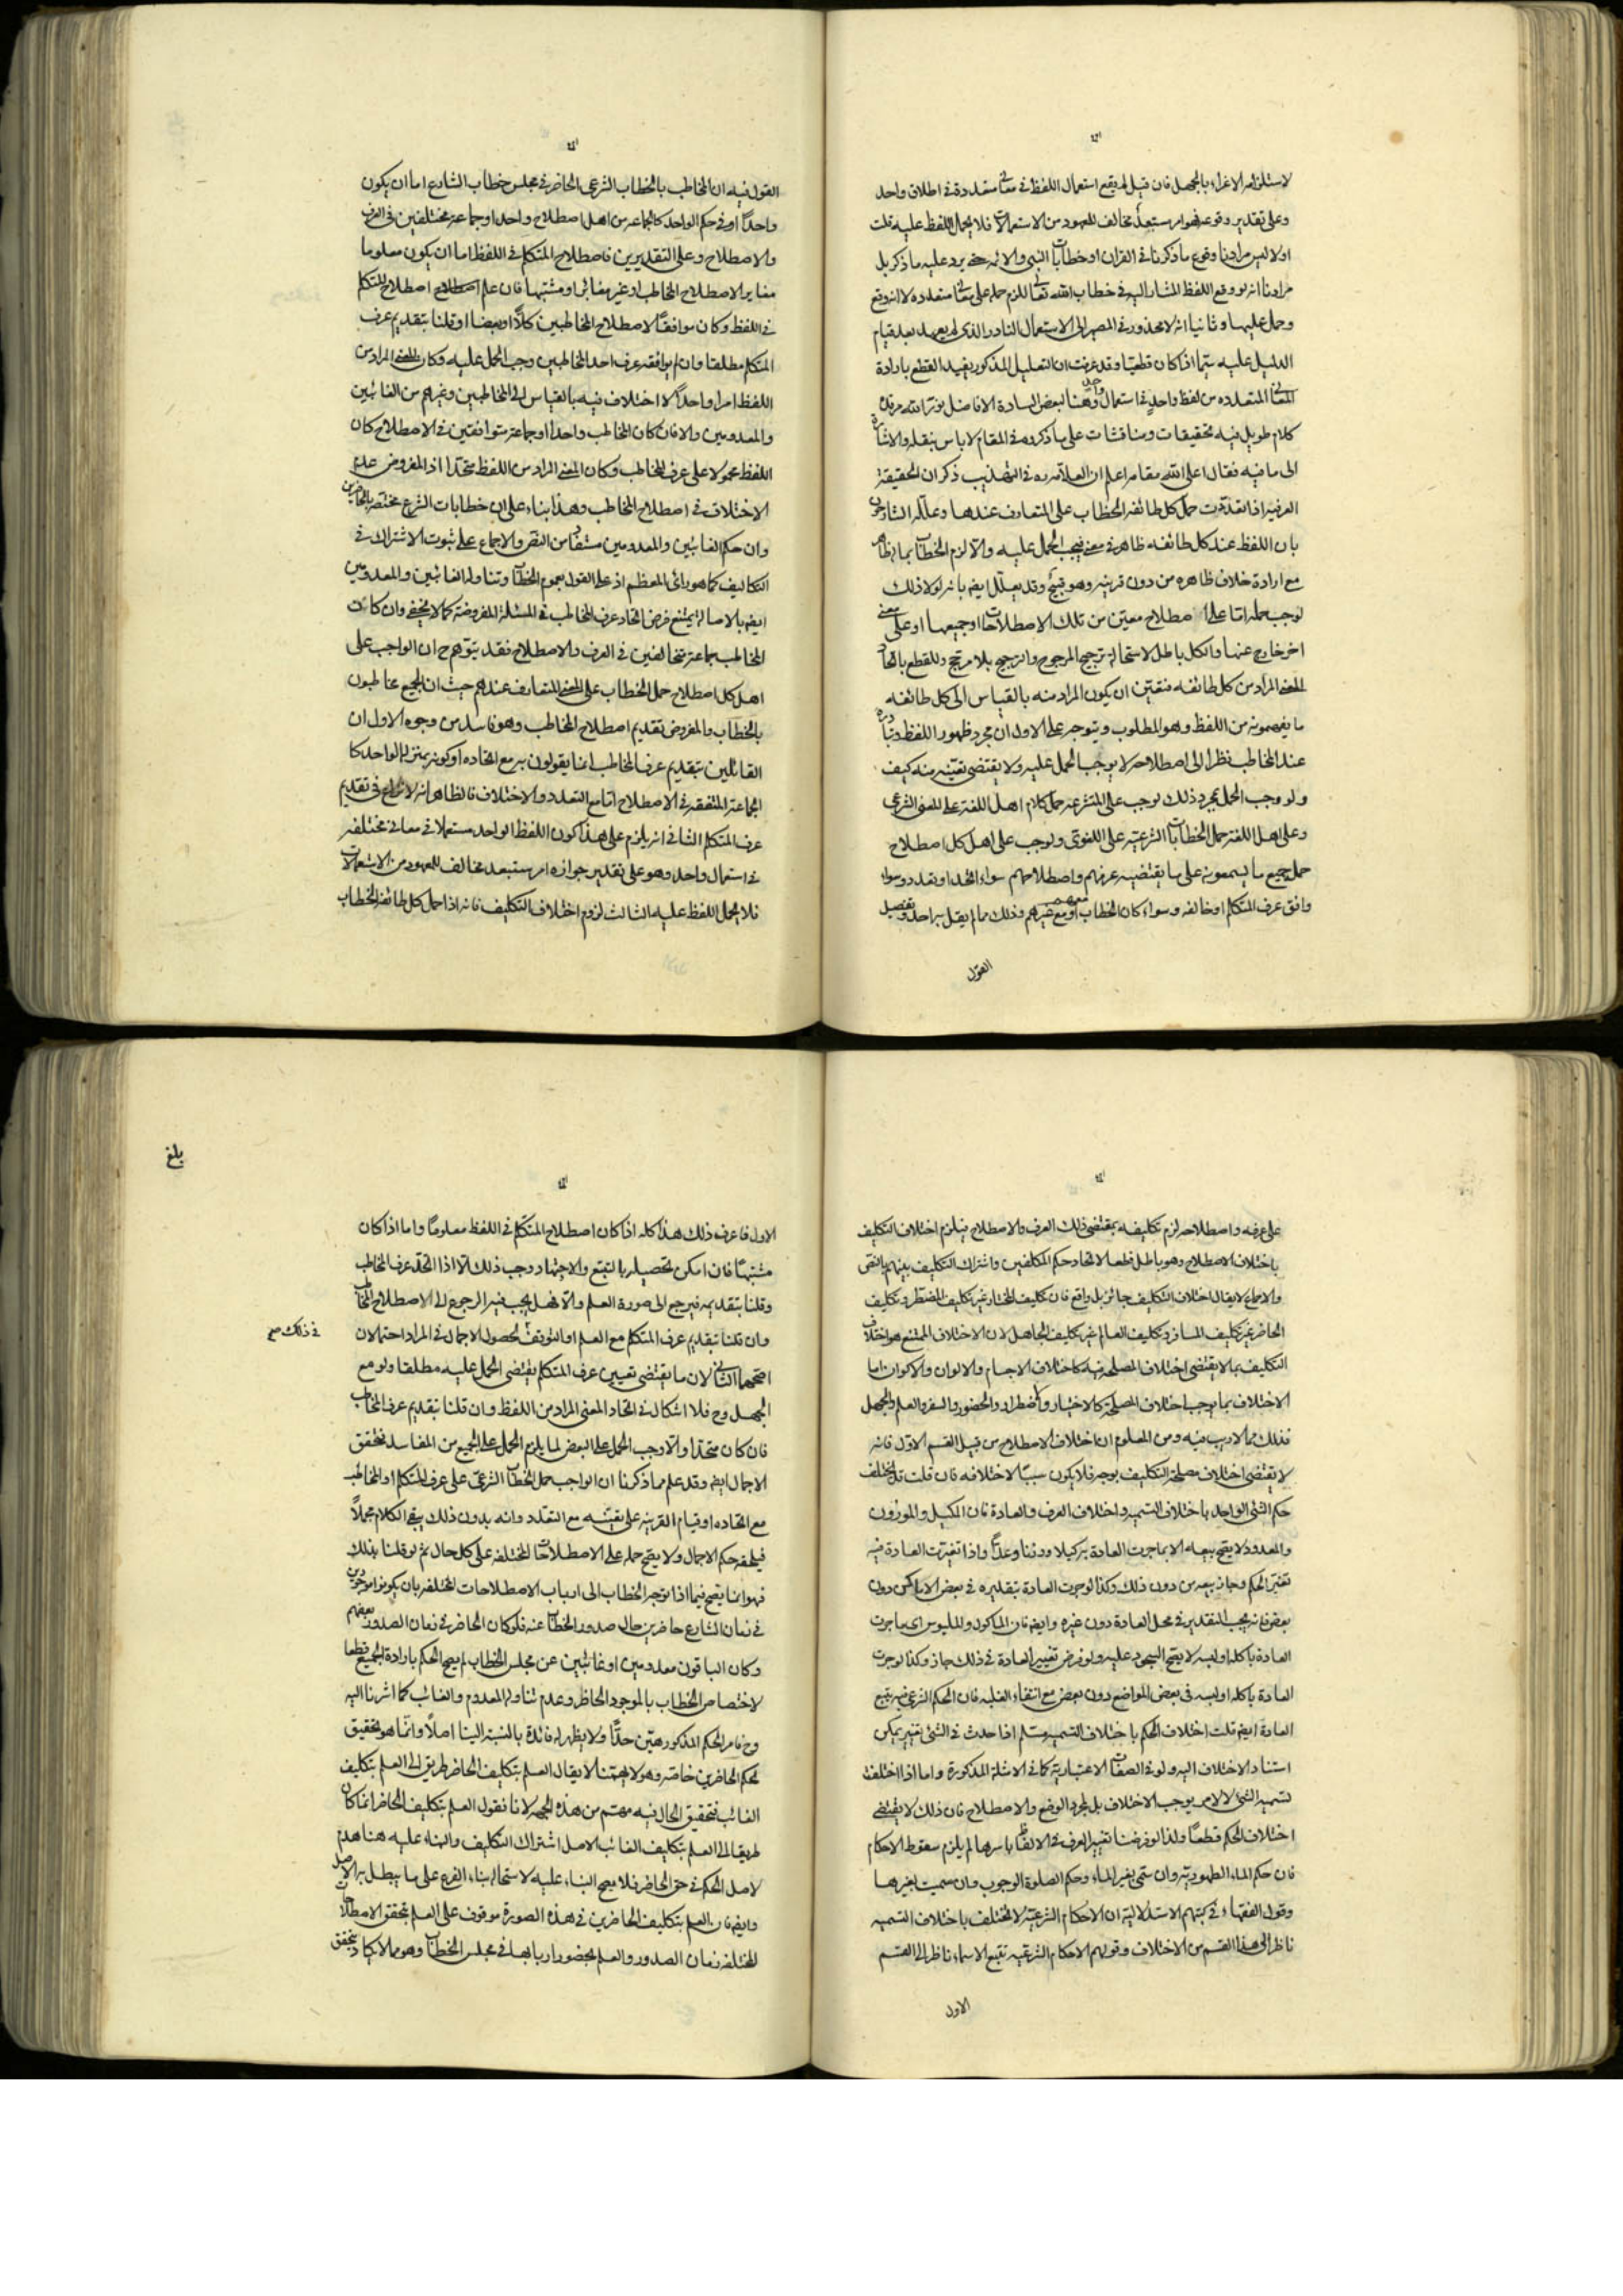 لاستلزامه الاغراء بالجهل فان قيل لم يقع استعمال اللفظ في معاني متعددة في اطلاق واحد
وعلى تقدير وقوعه فهو امر مستبعد مخالف للمعهود من الاستعمالات فلا يحمل اللفظ عليه قلت
اولا ليس مرادنا وقوع ما ذكرنا في القران او خطابات النبي والائمه حتى يرد عليه ما ذكر بل
مرادنا انه لو وقع اللفظ المشار اليه في خطاب الله تعالى للزم حمله على معاني متعدده لا انه وقع
وحمل عليها وثانيا انه لا محذور في المصير الى الاستعمال النادر الذي لم يعهد بعد قيام
الدليل عليه سيما اذا كان قطعيا وقد عرفت ان التعليل المذكور يفيد القطع بارادة
المعاني المتعدده من لفظ واحد في استعمال واحد وهنا لبعض السادة الافاضل نور الله مرقده
كلام طويل فيه تحقيقات ومناقشات على ما ذكروه في المقام لا باس بنقله والاشارة
الى ما فيه فقال اعلى الله مقامه اعلم ان العلامه ره في التهذيب ذكر ان الحقيقة
العرفيه اذا تعددت حمل كل طائفه الخطاب على المتعارف عندها وعلله الشارحون
بان اللفظ عند كل طائفه ظاهر في معنى فيجب الحمل عليه والا لزم الخطاب بما له ظاهر
مع ارادة خلاف ظاهره من دون قرينه وهو قبيح وقد يعلل ايضا بانه لولا ذلك
لوجب حمله اما على اصطلاح معين من تلك الاصطلاحات او جميعها او على معنى
اخر خارج عنها والكل باطل لاستحالة ترجيح المرجوح والترجيح بلا مرجح وللقطع باتحاد
المعنى المراد من كل طائفه فتعين ان يكون المراد منه بالقياس الى كل طائفه
ما يفهمونه من اللفظ وهو المطلوب ويتوجه على الاول ان مجرد ظهور اللفظ وتبادره
عند المخاطب نظرا الى اصطلاحه لا يوجب الحمل عليه ولا يقتضي تعينه منه كيف
ولو وجب الحمل بمجرد ذلك لوجب على المتشرعه حمل كلام اهل اللغة على المعنى الشرعي
وعلى اهل اللغة حمل الخطابات الشرعيه على اللغوي ولوجب على اهل كل اصطلاح
حمل جميع ما يسمعونه على ما يقتضيه عرفهم واصطلاحهم سواء اتحد او تعدد وسواء
وافق عرف المتكلم او خالفه وسواء كان الخطاب معهم او مع غيرهم وذلك مما لم يقل به احد وتفصيل
القول
القول فيه ان المخاطب بالخطاب الشرعي الحاضر في مجلس خطاب الشارع اما ان يكون
واحدا او في حكم الواحد كالجماعه من اهل اصطلاح واحد او جماعة مختلفين في العرف
والاصطلاح وعلى التقديرين فاصطلاح المتكلم في اللفظ اما ان يكون معلوما
مغايرا لاصطلاح المخاطب او غير مغاير او مشتبها فان علم اصطلاح المتكلم
في اللفظ وكان موافقا لاصطلاح المخاطبين كلا او بعضا او قلنا بتقديم عرف
المتكلم مطلقا وان لم يوافقه عرف احد المخاطبين وجب الحمل عليه وكان المعنى المراد من
اللفظ امرا واحدا لا اختلاف فيه بالقياس الى المخاطبين وغيرهم من الغائبين
والمعدومين والا فان كان المخاطب واحدا او جماعة متوافقين في الاصطلاح كان
اللفظ محمولا على عرف المخاطب وكان المعنى المراد من اللفظ متحدا اذ المفروض عدم
الاختلاف في اصطلاح المخاطب وهذا بناء على ان خطابات الشرع مختصه بالحاضرين
وان حكم الغائبين والمعدومين مستفاد من النص والاجماع على ثبوت الاشتراك في
التكاليف كما هو رائى المعظم اذ على القول بعموم الخطاب وتناوله الغائبين والمعدومين
ايضا بالاصالة يمتنع فرض اتحاد عرف المخاطب في المسئلة المفروضة كما لا يخفى وان كان
المخاطب جماعة متخالفين في العرف والاصطلاح فقد يتوهم ح ان الواجب على
اهل كل اصطلاح حمل الخطاب على المعنى المتعارف عندهم حيث ان الجميع مخاطبون
بالخطاب والمفروض تقديم اصطلاح المخاطب وهو فاسد من وجوه الاول ان
القائلين بتقديم عرف المخاطب انما يقولون به مع اتحاده او كونه بمنزلة الواحد كما
الجماعة المتفقه في الاصطلاح اما مع التعدد والاختلاف فالظاهر انه لا نزاع في تقديم
عرف المتكلم الثاني انه يلزم على هذا كون اللفظ الواحد مستعملا في معاني مختلفه
في استعمال واحد وهو على تقدير جوازه امر مستبعد مخالف للمعهود من الاستعمالات
فلا يحمل اللفظ عليه الثالث لزوم اختلاف التكليف فانه اذا حمل كل طائفه الخطاب
على عرفه واصطلاحه لزم تكليفه بمقتضى ذلك العرف والاصطلاح فيلزم اختلاف التكليف
باختلاف الاصطلاح وهو باطل قطعا لاتحاد حكم المكلفين واشتراك التكليف بينهم بالنص
والاجماع لا يقال اختلاف التكليف جائز بل واقع فان تكليف المختار غير تكليف المضطر وتكليف
الحاضر غير تكليف المسافر وتكليف العالم غير تكليف الجاهل لان الاختلاف الممتنع هو اختلاف
التكليف بما لا يقتضي اختلاف المصلحه فيه كاختلاف الاجسام والالوان والاكوان اما
الاختلاف بما يوجب اختلاف المصلحة كالاختيار والاضطرار والحضور والسفر والعلم والجهل
فذلك مما لا ريب فيه ومن المعلوم ان اختلاف الاصطلاح من قبيل القسم الاول فانه
لا يقتضي اختلاف مصلحة التكليف بوجه فلا يكون سببا لاختلافه فان قلت قد يختلف
حكم الشئ الواحد باختلاف التسميه واختلاف العرف والعادة فان المكيل والموزون
والمعدود لا يصح بيعه الا بما جرت العادة به كيلا ووزنا وعدا واذا تغيرت العادة فيه
تغير الحكم وجاز بيعه من دون ذلك وكذا لو جرت العادة بتقديره في بعض الاماكن دون
بعض فانه يجب التقدير في محل العادة دون غيره وايضا فان الماكول والملبوس اى ما جرت
العادة باكله او لبسه لا يصح السجود عليه ولو فرض تغيير العادة في ذلك جاز وكذا لو جرت
العادة باكله او لبسه في بعض المواضع دون بعض مع انتفاء الغلبه فان الحكم الشرعي فيه يتبع
العادة ايضا قلت اختلاف الحكم باختلاف التسميه مسلم اذا حدث في الشئ تغيير يمكن
استناد الاختلاف اليه ولو في الصفات الاعتبارية كما في الامثلة المذكورة واما اذا اختلفت
تسمية الشئ لا لامر يوجب الاختلاف بل لمجرد الوضع والاصطلاح فان ذلك لا يقتضي
اختلاف الحكم قطعا ولذا لو فرضنا تغيير العرف في الالفاظ باسرها لم يلزم سقوط الاحكام
فان حكم الماء الطهورية وان سمى بغير الماء وحكم الصلوة الوجوب وان سميت بغيرها
وقول الفقهاء في كتبهم الاستدلالية ان الاحكام الشرعية لا تختلف باختلاف التسميه
ناظر الى هذا القسم من الاختلاف وقولهم الاحكام الشرعيه تتبع الاسماء ناظر الى القسم
الاول
بلغ
الاول فاعرف ذلك هذا كله اذا كان اصطلاح المتكلم في اللفظ معلوما واما اذا كان
مشتبها فان امكن تحصيله بالتتبع والاجتهاد وجب ذلك الا اذا اتحد عرف المخاطب
وقلنا بتقديمه فيرجع الى صورة العلم والا فهل يجب فيه الرجوع الى الاصطلاح المخاطب
وان قلنا بتقديم عرف المتكلم مع العلم او التوقف لحصول الاجمال في المراد احتمالان
في ذلك صح
اصحهما الثاني لان ما يقتضي تعيين عرف المتكلم يقتضي الحمل عليه مطلقا ولو مع
الجهل وح فلا اشكال في اتحاد المعنى المراد من اللفظ وان قلنا بتقديم عرف المخاطب
فان كان متحدا والا وجب الحمل على البعض لما يلزم الحمل على الجميع من المفاسد فتحقق
الاجمال ايضا وقد علم مما ذكرنا ان الواجب حمل الخطاب الشرعي على عرف المتكلم او المخاطب
مع اتحاده او قيام القرينه على تعينه مع التعدد وانه بدون ذلك يبقى الكلام مجملا
فيلحقه حكم الاجمال ولا يصح حمله على الاصطلاحات المختلفه على كل حال ثم لو قلنا بذلك
فهو انما يصح فيما اذا توجه الخطاب الى ارباب الاصطلاحات المختلفه بان يكونوا موجودين
في زمان الشارع حاضرين حال صدور الخطاب عنه فلو كان الحاضر في زمان الصدور بعضهم
وكان الباقون معدومين او غائبين عن مجلس الخطاب لم يصح الحكم بارادة الجميع قطعا
لاختصاص الخطاب بالموجود الحاضر وعدم تناوله المعدوم والغائب كما اشرنا اليه
وح فامر الحكم المذكور هين جدا ولا يظهر له فائدة بالنسبة الينا اصلا وانما هو تحقيق
لحكم الحاضرين خاصه وهو لا يهمنا لا يقال العلم بتكليف الحاضر طريق الى العلم بتكليف
الغائب فتحقيق الحال فيه مهم من هذه الجهه لانا نقول العلم بتكليف الحاضر انما كان
طريقا الى العلم بتكليف الغائب لاصل اشتراك التكليف والبناء عليه هنا هدم
لاصل الحكم في حق الحاضر فلا يصح البناء عليه لاستحالة بناء الفرع على ما يبطل به الاصل
وايضا فان العلم بتكليف الحاضرين في هذه الصورة موقوف على العلم بتحقق الاصطلاحات
المختلفه زمان الصدور والعلم بحضور اربابها في مجلس الخطاب وهو مما لا يكاد يتحقق